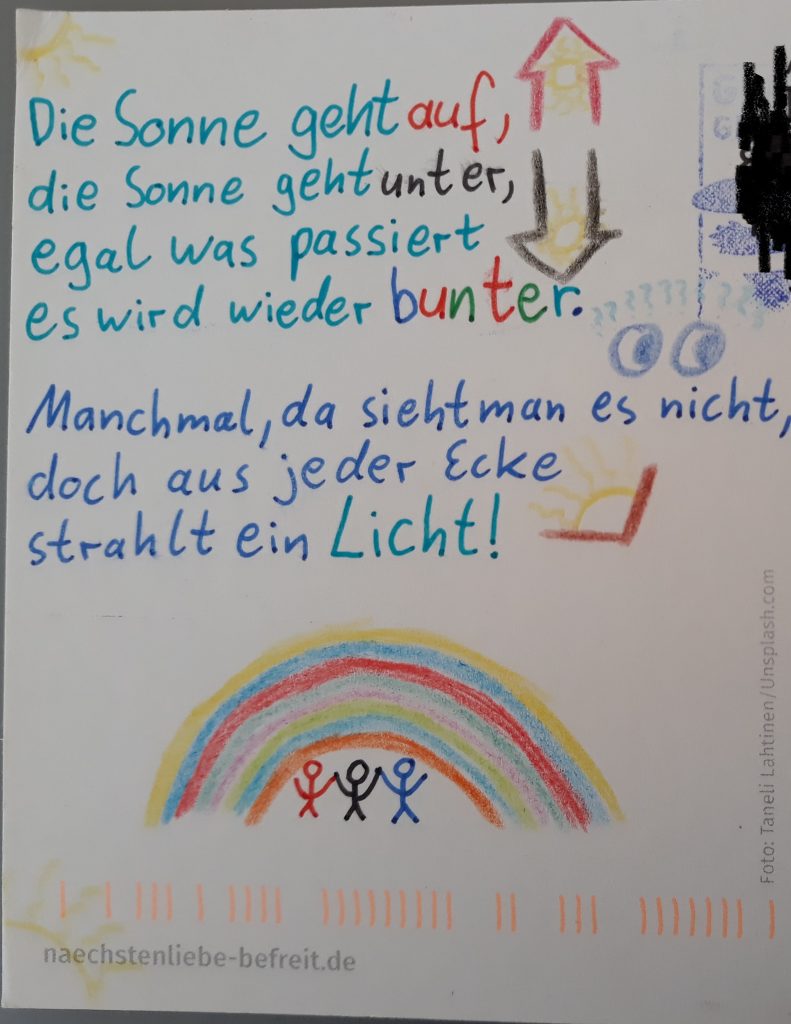 Die Sonne geht auf,
die Sonne geht unter,
egal was passiert
es wird wieder bunter.
??????????
Manchmal, da sieht man es nicht,
doch aus jeder Ecke
strahlt ein Licht!
Foto: Taneli Lahtinen/Unsplash.com
naechstenliebe-befreit.de